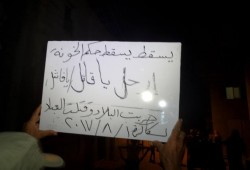 يسقط يسقط حكم الخونة
إرحل يا قاتل يا قاتل
البلاد وقتلت العباد
٢٠١٧/٨/١